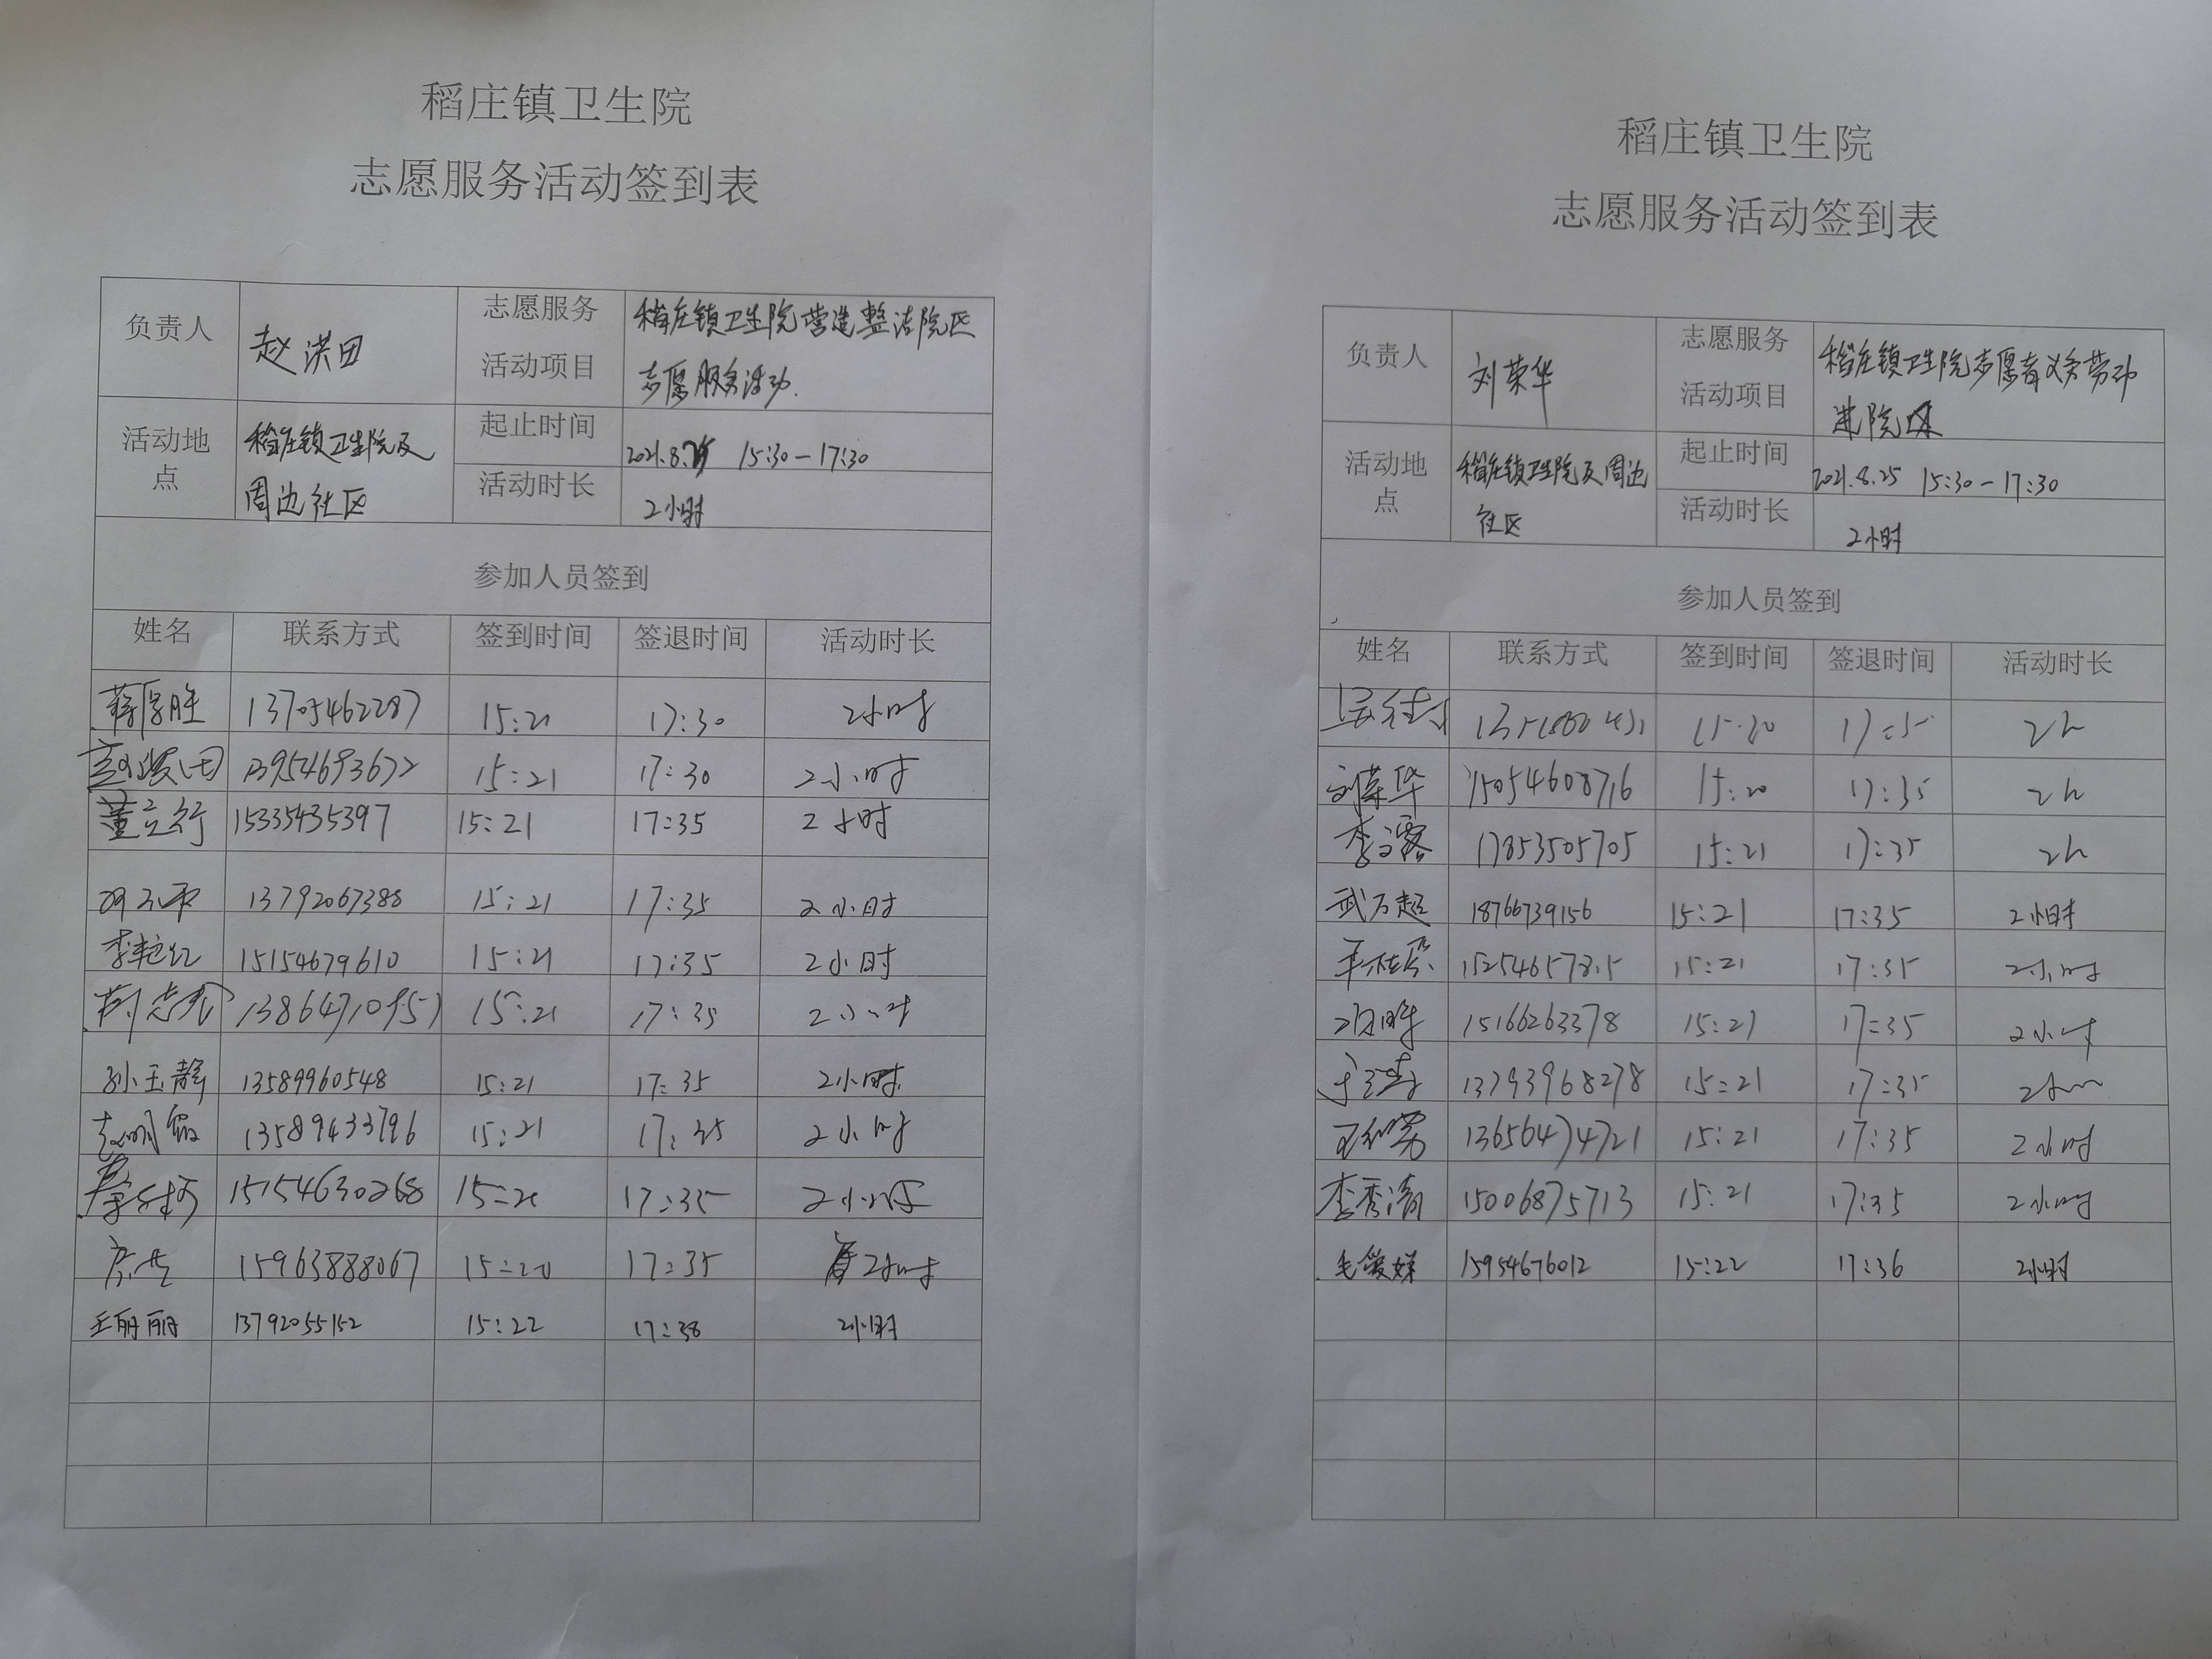 稻庄镇卫生院
志愿服务活动签到表
负责人 赵洪田 志愿服务活动项目 稻庄镇卫生院营造整洁院区
志愿服务活动.
活动地点 稻庄镇卫生院及
周边社区
起止时间 2021.8.25 15:30-17:30
活动时长 2小时
参加人员签到
姓名 联系方式 签到时间 签退时间 活动时长
13705462287 15:21 17:30 2小时
13954693672 15:21 17:30 2小时
董立行 15335435397 15:21 17:35 2小时
13792067388 15:21 17:35 2小时
李艳红 15154679610 15:21 17:35 2小时
15:21 17:35 2小时
孙玉静 13589960548 15:21 17:35 2小时
赵明霞 13589433796 15:21 17:35 2小时
15154630268 15:20 17:35 2小时
15963888067 15:20 17:35 2小时
王丽丽 13792055152 15:22 17:38 2小时
稻庄镇卫生院
志愿服务活动签到表
负责人 刘荣华 志愿服务活动项目 稻庄镇卫生院志愿者义务劳动
进院区
活动地点 稻庄镇卫生院及周边
社区
起止时间 2021.8.25 15:30-17:30
活动时长 2小时
参加人员签到
姓名 联系方式 签到时间 签退时间 活动时长
15:20 17:35 2h
刘荣华 15054608716 15:20 17:35 2h
李露 17853505705 15:21 17:35 2h
武万超 18766739156 15:21 17:35 2小时
15254657815 15:21 17:35 2小时
15166263378 15:21 17:35 2小时
13793968278 15:21 17:35
13656474721 15:21 17:35 2小时
李秀清 15006875713 15:21 17:35 2小时
毛爱娣 15954676012 15:22 17:36 2小时